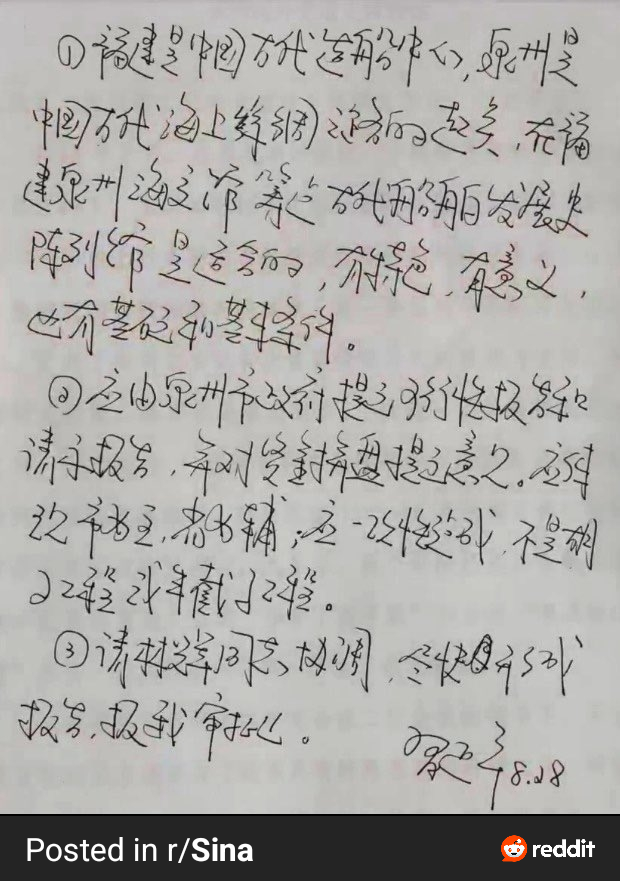 ①福建是中国古代造船中心,泉州是
中国古代海上丝绸之路的起点,在福
建泉州海交馆筹建古代船舶发展史
陈列馆是适合的,有特色,有意义,
也有基础和基本条件。
②应由泉州市政府提出可行性报告和
请示报告,并对资金拼盘提出意见。应体
现市为主,省为辅;应一次性建成,不是胡
子工程或半截子工程。
③请林辉同志协调,尽快形成
报告,报我审批。
习近平 8.28
Posted in r/Sina
reddit